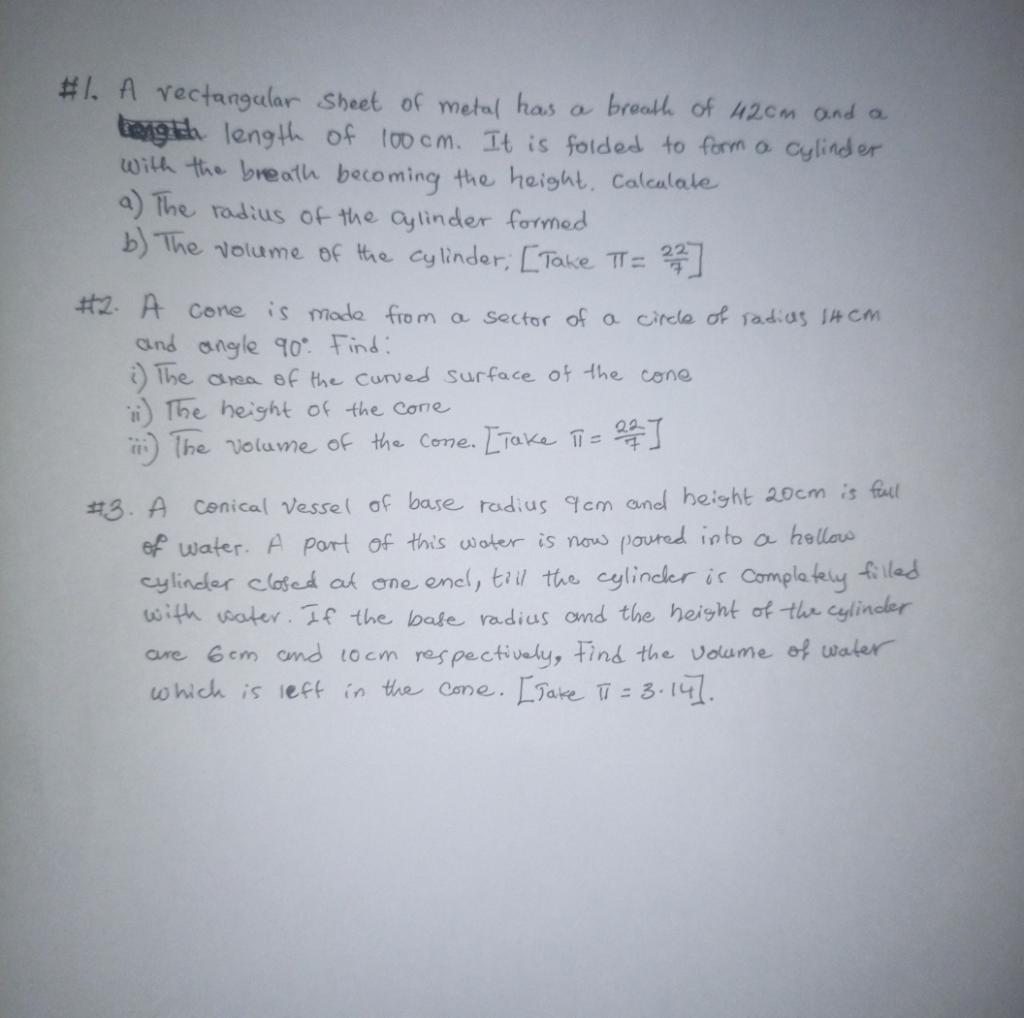 #1. A rectangular sheet of metal has a breath of 42cm and a
length of 100cm. It is folded to form a cylinder
with the breath becoming the height. Calculate
a) The radius of the cylinder formed
b) The volume of the cylinder; [Take π = 22/7]
#2. A cone is made from a sector of a circle of radius 14cm
and angle 90°. Find:
i) The area of the curved surface of the cone
ii) The height of the cone
iii) The volume of the cone. [Take π = 22/7]
#3. A conical vessel of base radius 9cm and height 20cm is full
of water. A part of this water is now poured into a hollow
cylinder closed at one end, till the cylinder is completely filled
with water. If the base radius and the height of the cylinder
are 6cm and 10cm respectively, find the volume of water
which is left in the cone. [Take π = 3.14].